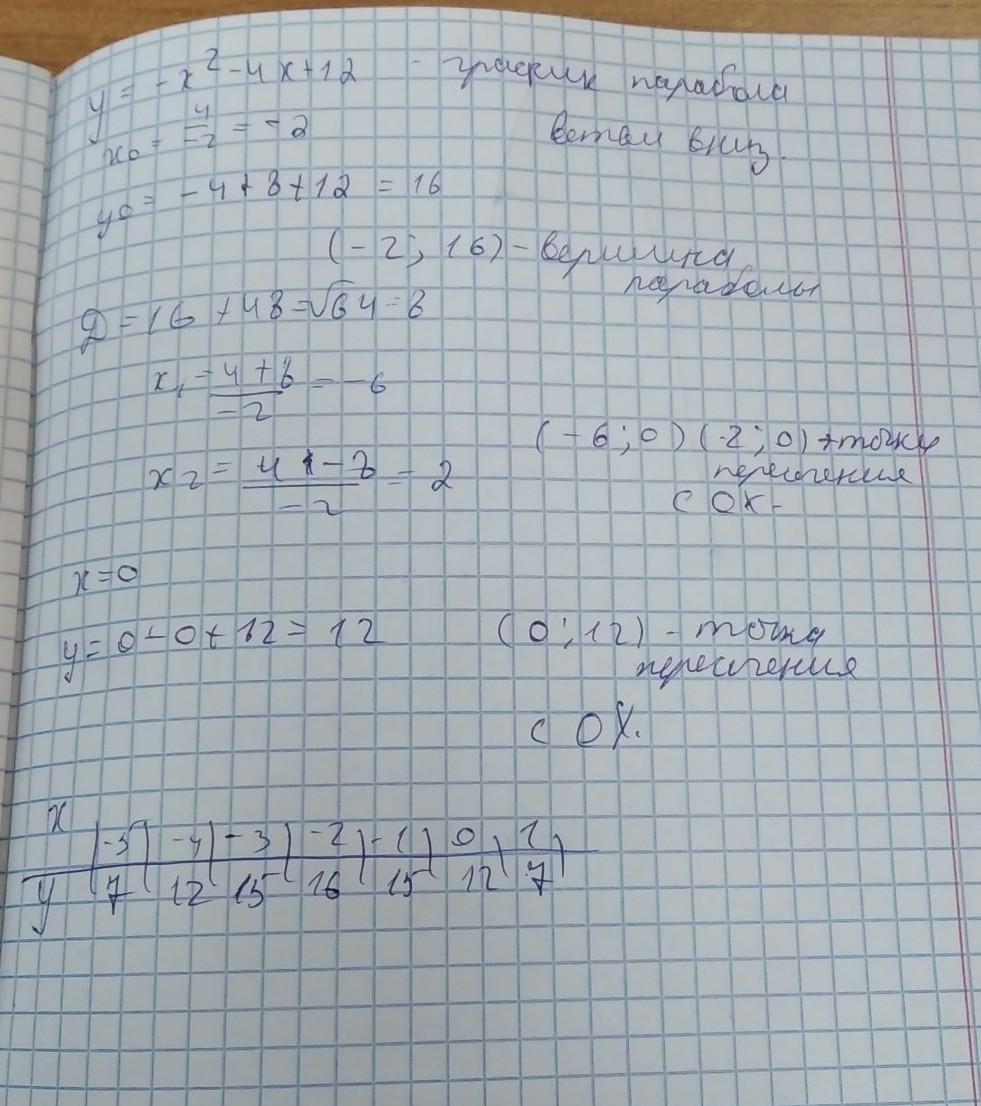 y = -x² - 4x + 12 - график парабола
x₀ = 4/-2 = -2 ветви вниз.
y₀ = -4 + 8 + 12 = 16
(-2; 16) - вершина
параболы
D = 16 + 48 = √64 = 8
x₁ = 4 + 8/-2 = -6
(-6; 0) (-2; 0) - точки
x₂ = 4 - 8/-2 = 2
пересечения
с OX-
x = 0
y = 0 - 0 + 12 = 12 (0; 12) - точка
пересечения
с OX.
x | -5 | -4 | -3 | -2 | -1 | 0 | 1 |
y | 7 | 12 | 15 | 16 | 15 | 12 | 7 |